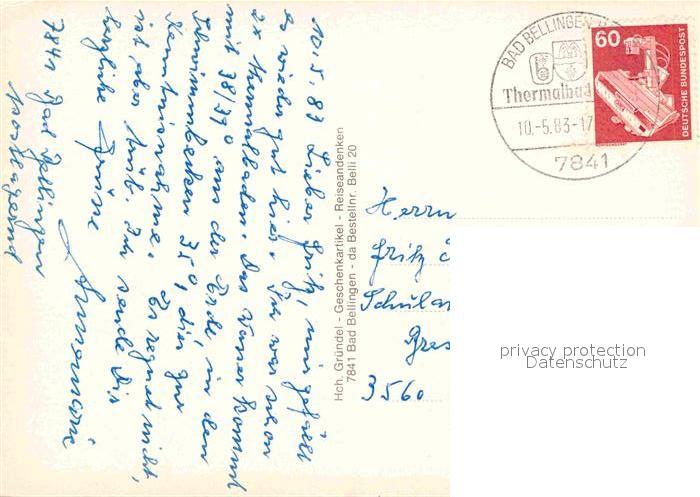 10.5.83 Lieber Fritz, mir gefällt
es wieder gut hier. Ich war schon
2x Thermalbaden. Das Wasser kommt
mit 38/39° aus der Erde, in den
Schwimmbecken 35°, dies zur
Kenntnisnahme. Es regnet nicht,
ist aber trüb. Ich sende Dir
herzliche Grüsse
Annemarie
7841 Bad Bellingen
postlagernd
Hch. Gründel - Geschenkartikel - Reiseandenken
7841 Bad Bellingen - da Bestellnr. Belli 20
BAD BELLINGEN
Thermalbad
10.-5.83-17
7841
60
DEUTSCHE BUNDESPOST
Herrn
Fritz
Schul
3560
privacy protection
Datenschutz